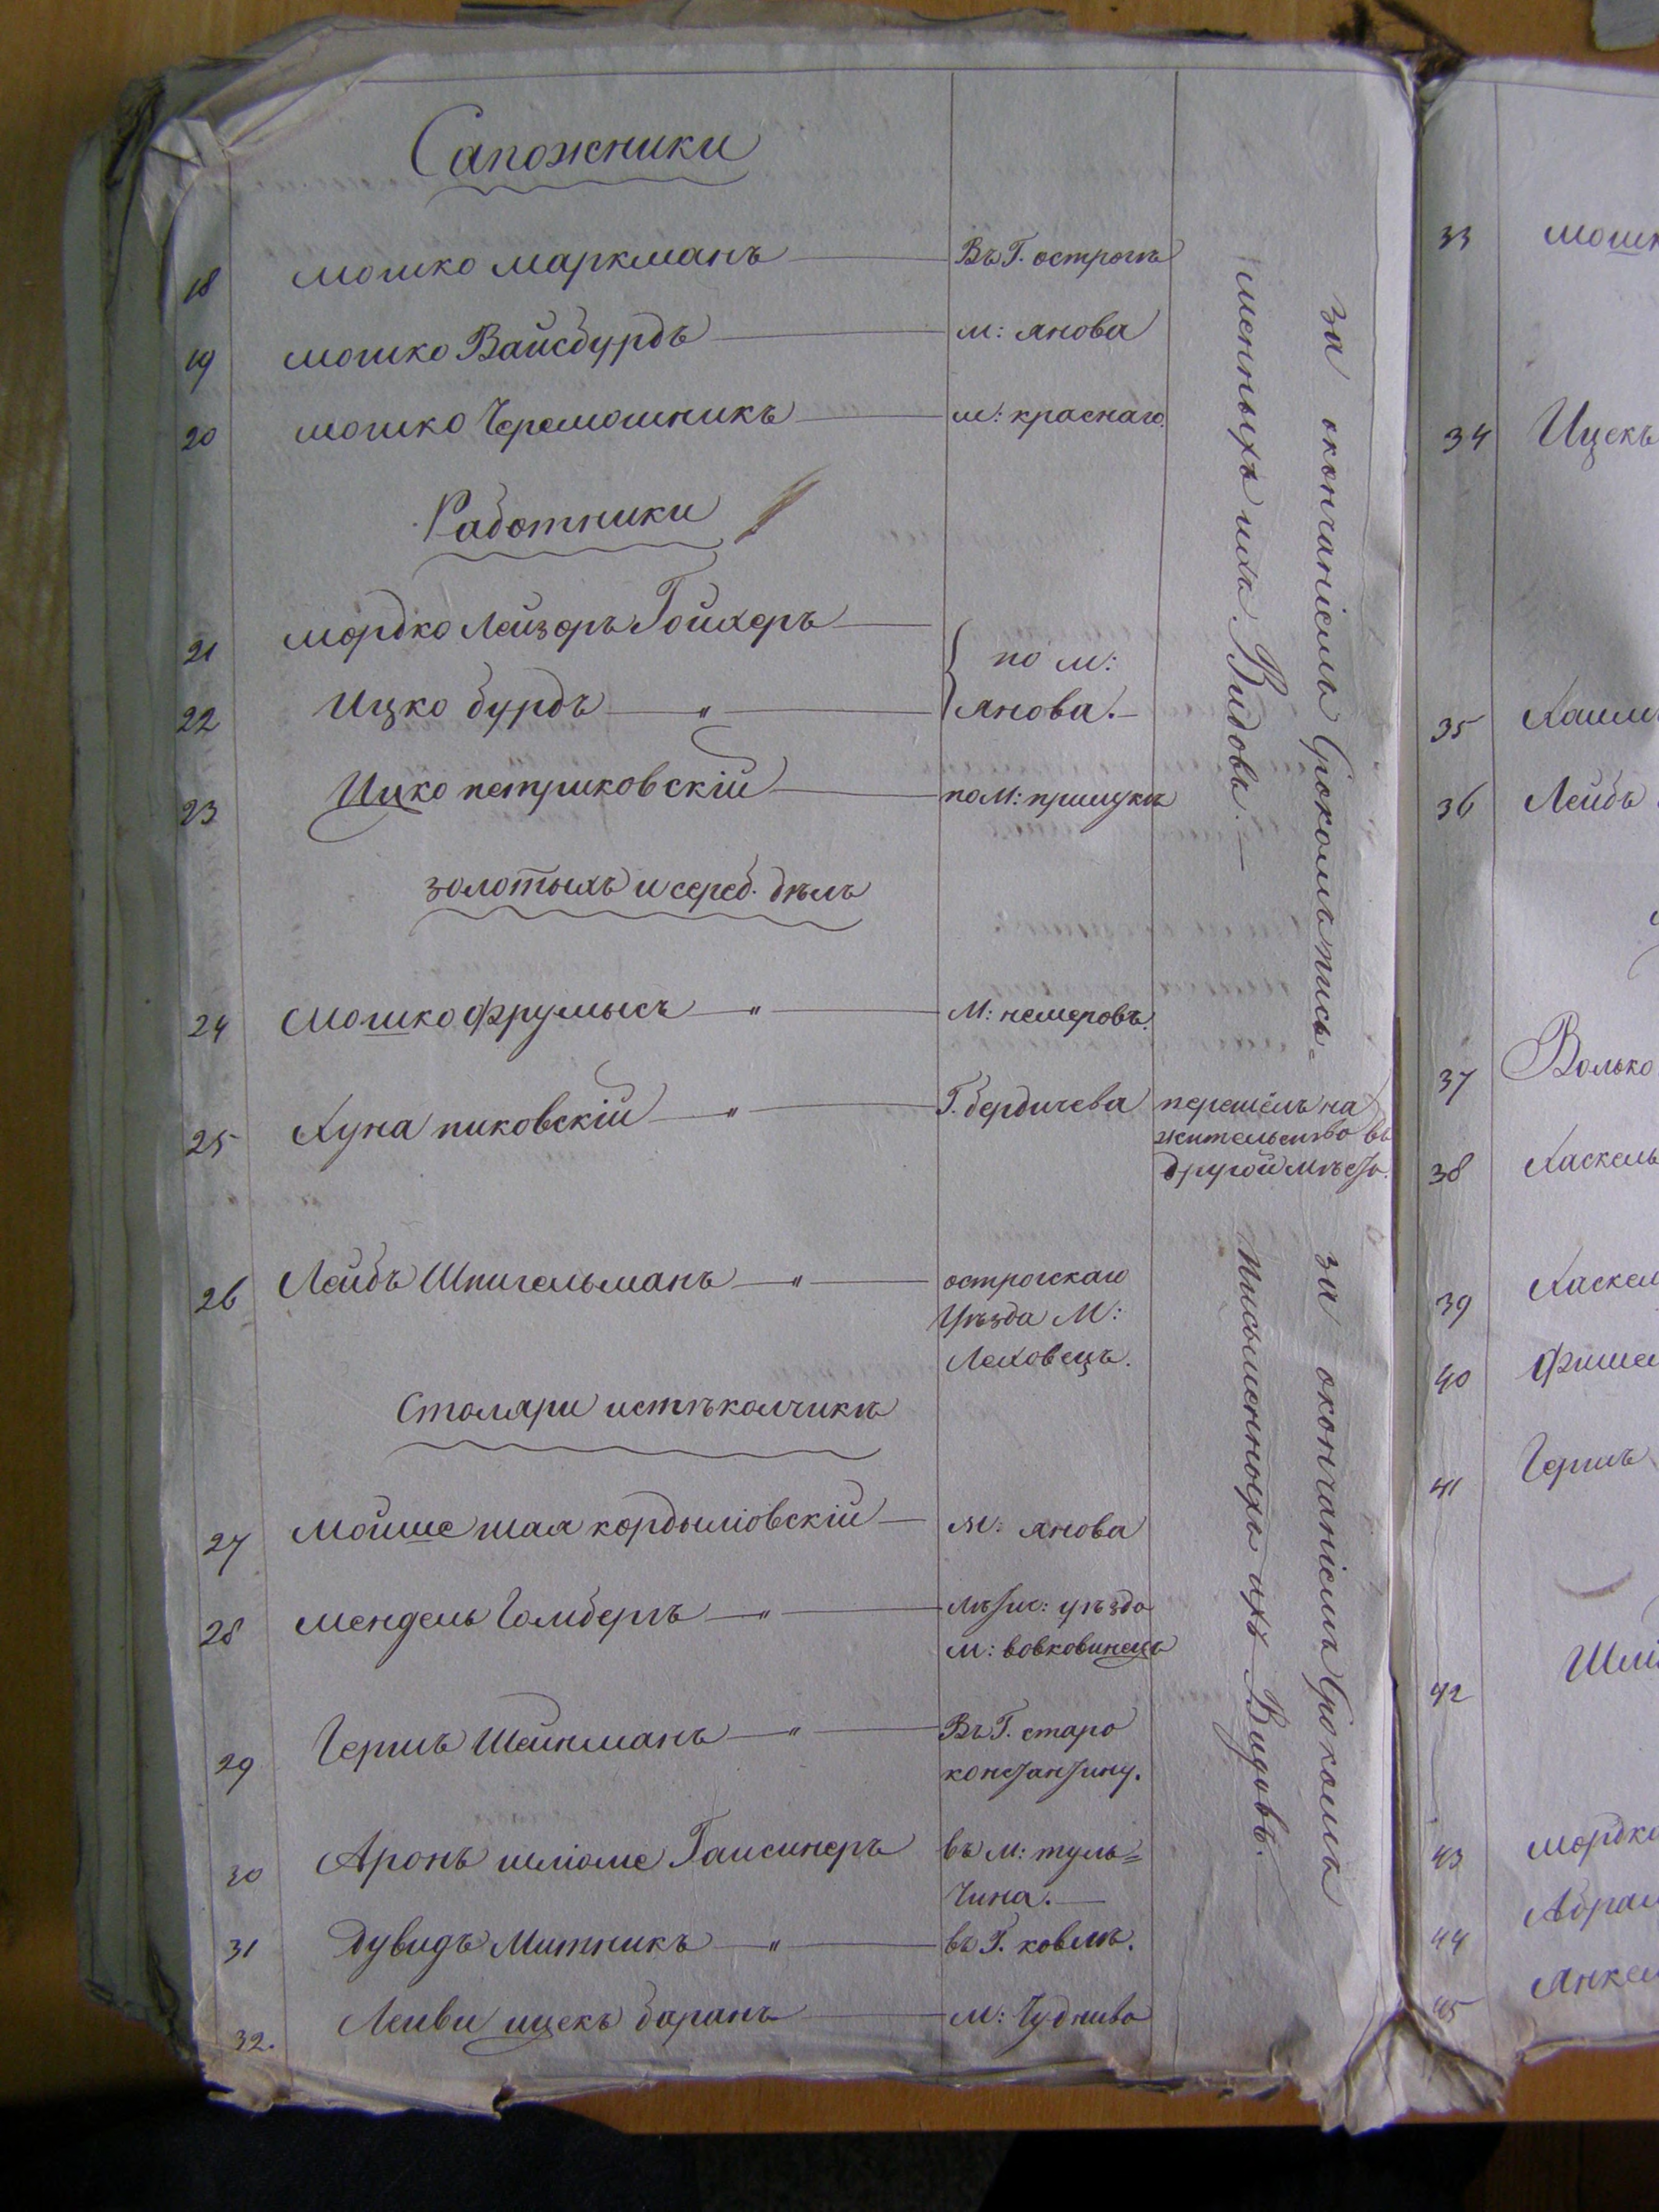 Сапожники
18 мошко маркманъ Въ Г. острогѣ
19 мошко Вайсбурдъ м: янова
20 мошко Черемошникъ м: краснаго.
Работники
21 мордко Лейзоръ Гойхеръ
по м:
22 Ицко бурдъ " янова.
23 Ицко петриковскій по М:
золотыхъ и сереб. дѣлъ
24 Мошко Фрумысъ " М: немеровъ.
25 Хуна пиковскій " Г. бердичева перешелъ на
жительство въ
другой мѣсто.
26 Лейбъ Шпигельманъ " острогскаго
Уѣзда М:
Ляховецъ.
Столяри и стѣколчикѣ
27 Мойше шая кордылiовскій м: янова
28 мендель Голмбергъ " уѣзда
м: вовковинецъ
29 Гершъ Шейнманъ " Въ Г. старо
константину.
30 Аронъ шліоме Гаисинеръ въ м: туль=
чина.
31 Дувидъ Митникъ " въ Г. ковлѣ.
32. Леиви ицекъ баранъ м: Чуднива
за окончаніемъ Срокомъ пись=
менныхъ ихъ Видовъ.
за окончаніемъ Срокомъ
письменныхъ ихъ Видовъ.
33
34 Ицекъ
35
36 Лейбъ
37 Волько
38 Хаскель
39
40
41 Гершъ
42
43 мордко
44
45